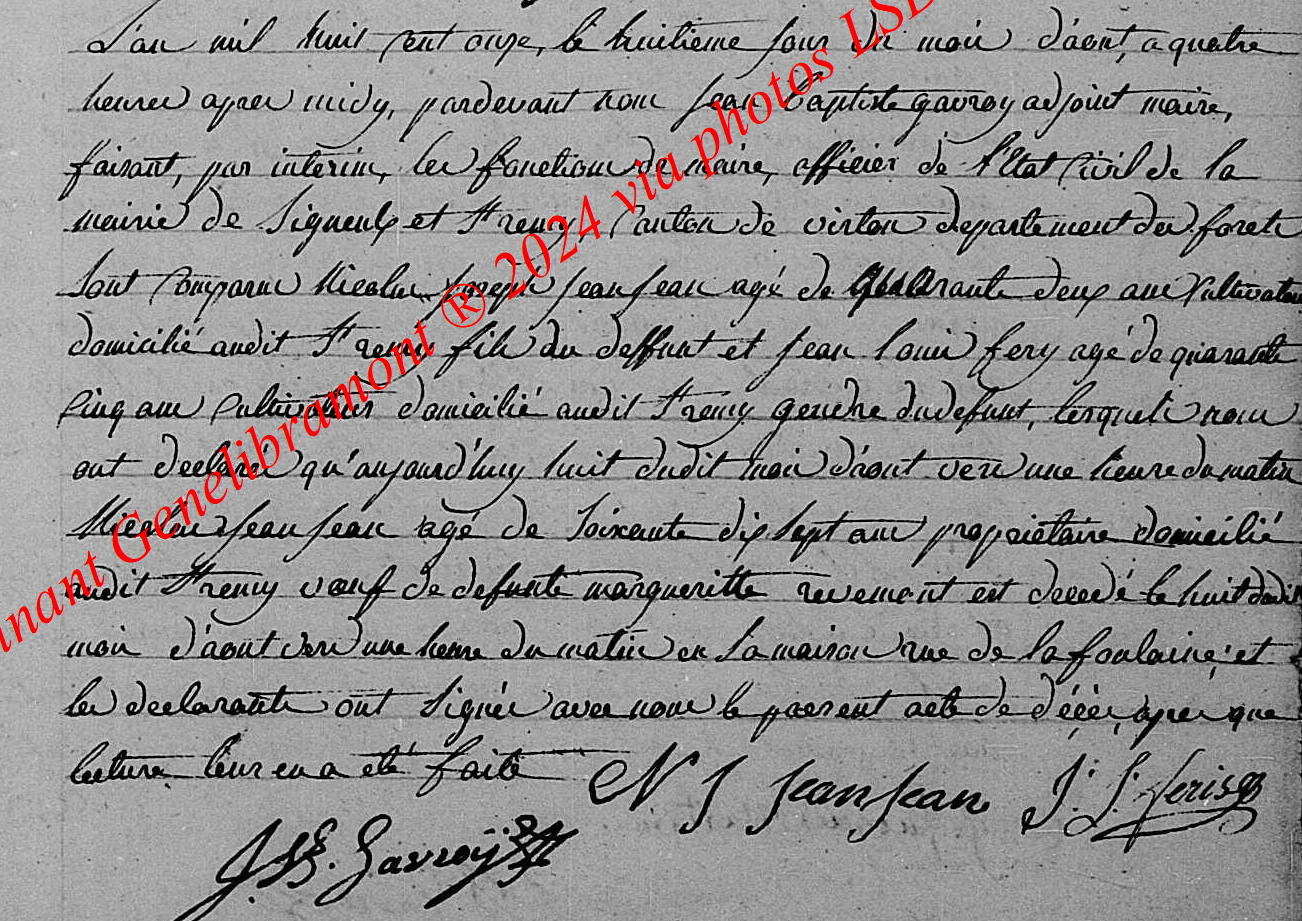 L'an mil huit cent onze, le huitieme jour du mois d'aout, a quatre
heures apres midy, pardevant nous Jean Baptiste gavroy adjoint maire,
faisant, par intèrim, les fonctions de maire, officier de l'Etat Civil de la
mairie de Signeulx et St remy, Canton de virton departement des forets
Sont Comparus Nicolas Joseph jeanjean agé de quarante deux ans Cultivateur
domicilié audit St remy fils du deffunt et jean louis fery agé de quarante
Cinq ans Cultivateur domicilié audit St remy gendre du defunt, lesquels nous
ont declaré qu'aujourd'huy huit dudit mois d'aout vers une heure du matin
Nicolas jeanjean agé de Soixante dix Sept ans propriètaire domicilié
audit St remy vœuf de defunte margueritte revemont est decedé le huit dudit
mois d'aout vers une heure du matin en Sa maison rue de la foulaine, et
les declarants ont Signés avec nous le present acte de décès, apres que
lecture leur en a eté faite
N J jeanjean
J: L: feris
J. Bte. Gavroÿ
inant Genelibramont ® 2024 via photos LSD